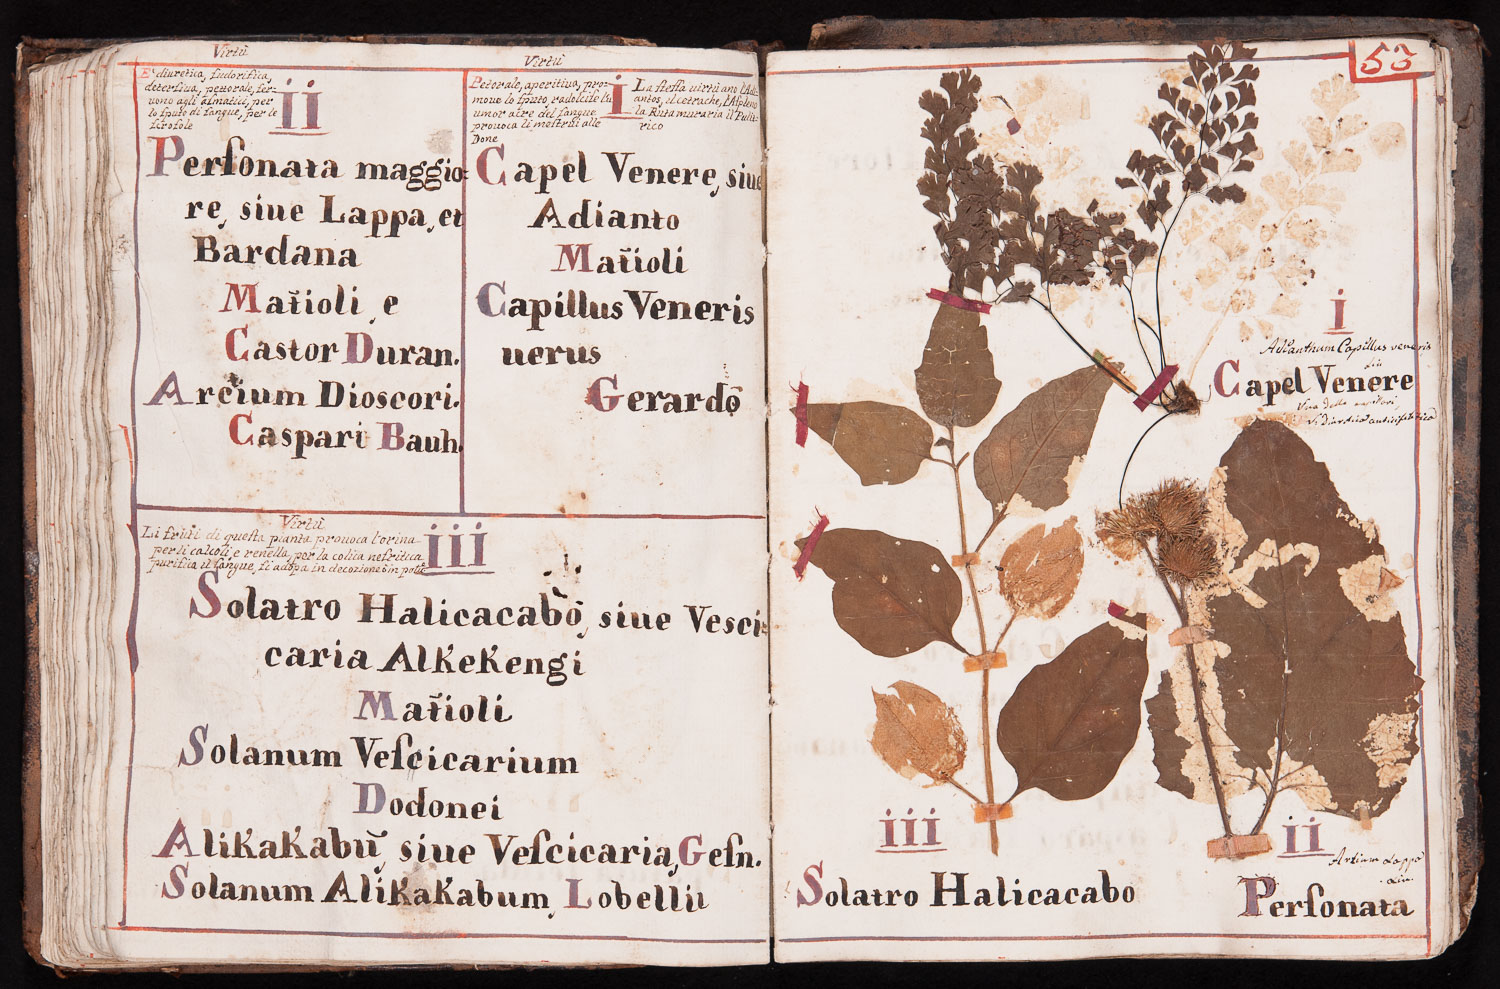 Virtù
E diuretica, sudorifica,
detersiua, pettorale, ser-
uono agli asmatici, per
lo sputo di sangue, per le
scrofole
ii
Perſonata maggio=
re, siue Lappa, et
Bardana
Matioli, e
Castor Duran.
Arcium Dioscori.
Caspari Bauh.
Virtù
Pettorale, aperitiua, pro-
moue lo sputo, radolcisse l'
umor acre del sangue
prouoca li mestrui alle
Done
i
La stessa virtù ano l'Adi-
antos, il cetrache, l'Aspleno
la Ruta muraria il
rico
Capel Venere, siue
Adianto
Matioli
Capillus Veneris
uerus
Gerardo
Virtù
Li fruti di questa pianta prouoca l'orina
per li calcoli, e renella, per la colica nefritica
purifica il sangue, si adopa in decozione o in
iii
Solatro Halicacabo, siue Vesci=
caria Alkekengi
Matioli
Solanum Veſcicarium
Dodonei
Alikakabu, siue Veſcicaria, Geſn.
Solanum Alikakabum Lobelii
53
i
Adianthum Capillus veneris
Lin
Capel Venere
iii
Solatro Halicacabo
ii
Artium Lappa
Lin.
Perſonata